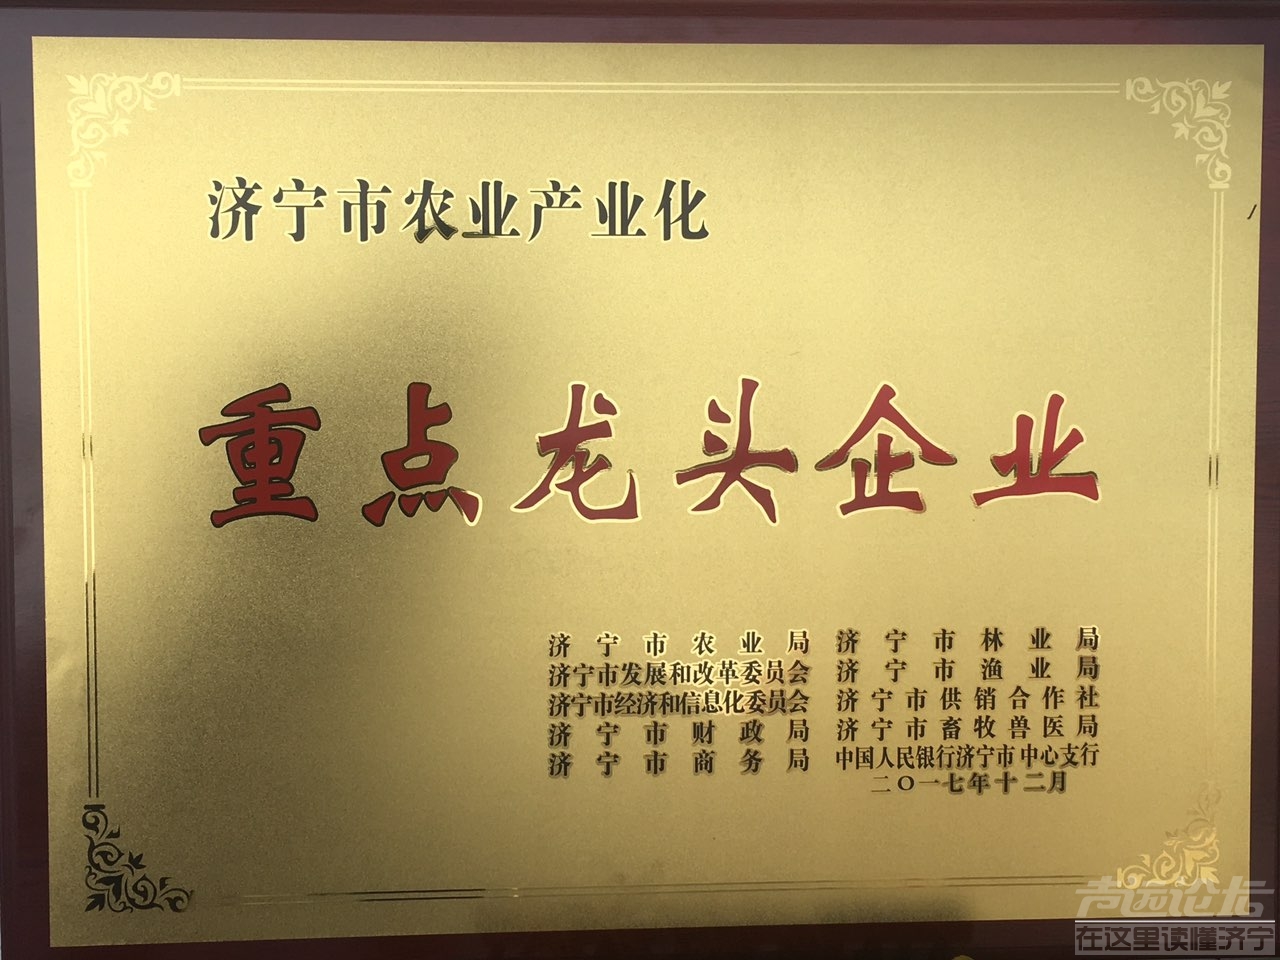 济宁市农业产业化
重点龙头企业
济宁市农业局 济宁市林业局
济宁市发展和改革委员会 济宁市渔业局
济宁市经济和信息化委员会 济宁市供销合作社
济宁市财政局 济宁市畜牧兽医局
济宁市商务局 中国人民银行济宁市中心支行
二〇一七年十二月
在这里读懂济宁